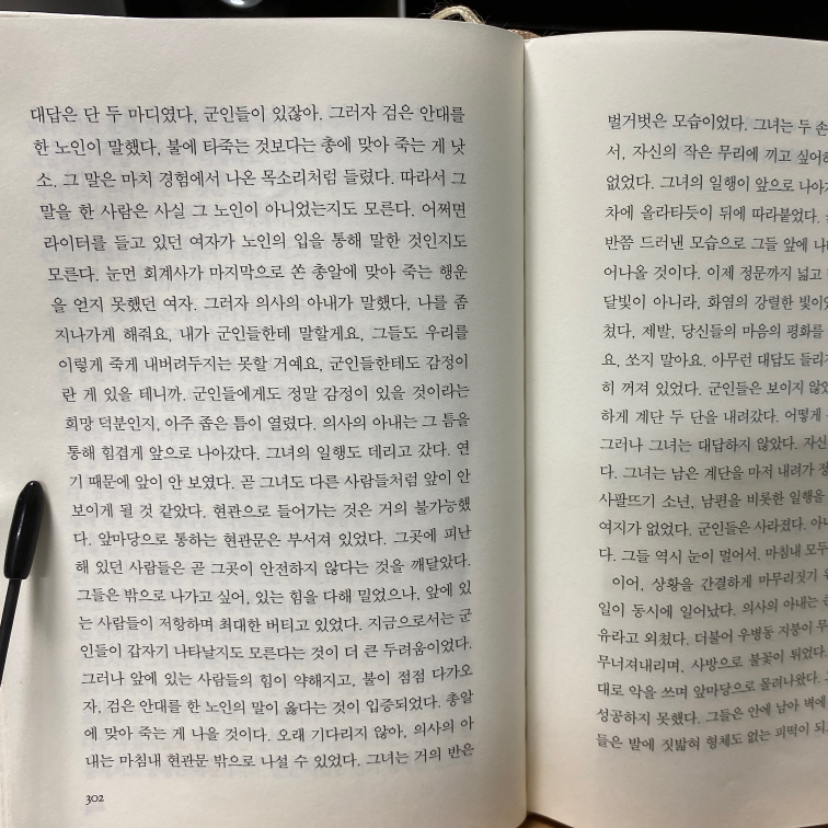 대답은 단 두 마디였다, 군인들이 있잖아. 그러자 검은 안대를
한 노인이 말했다, 불에 타죽는 것보다는 총에 맞아 죽는 게 낫
소. 그 말은 마치 경험에서 나온 목소리처럼 들렸다. 따라서 그
말을 한 사람은 사실 그 노인이 아니었는지도 모른다. 어쩌면
라이터를 들고 있던 여자가 노인의 입을 통해 말한 것인지도
모른다. 눈먼 회계사가 마지막으로 쏜 총알에 맞아 죽는 행운
을 얻지 못했던 여자. 그러자 의사의 아내가 말했다, 나를 좀
지나가게 해줘요, 내가 군인들한테 말할게요, 그들도 우리를
이렇게 죽게 내버려두지는 못할 거예요, 군인들한테도 감정이
란 게 있을 테니까. 군인들에게도 정말 감정이 있을 것이라는
희망 덕분인지, 아주 좁은 틈이 열렸다. 의사의 아내는 그 틈을
통해 힘겹게 앞으로 나아갔다. 그녀의 일행도 데리고 갔다. 연
기 때문에 앞이 안 보였다. 곧 그녀도 다른 사람들처럼 앞이 안
보이게 될 것 같았다. 현관으로 들어가는 것은 거의 불가능했
다. 앞마당으로 통하는 현관문은 부서져 있었다. 그곳에 피난
해 있던 사람들은 곧 그곳이 안전하지 않다는 것을 깨달았다.
그들은 밖으로 나가고 싶어, 있는 힘을 다해 밀었으나, 앞에 있
는 사람들이 저항하며 최대한 버티고 있었다. 지금으로서는 군
인들이 갑자기 나타날지도 모른다는 것이 더 큰 두려움이었다.
그러나 앞에 있는 사람들의 힘이 약해지고, 불이 점점 다가오
자, 검은 안대를 한 노인의 말이 옳다는 것이 입증되었다. 총알
에 맞아 죽는 게 나을 것이다. 오래 기다리지 않아, 의사의 아
내는 마침내 현관문 밖으로 나설 수 있었다. 그녀는 거의 반은
302
벌거벗은 모습이었다. 그녀는 두 손
서, 자신의 작은 무리에 끼고 싶어
없었다. 그녀의 일행이 앞으로 나아
차에 올라타듯이 뒤에 따라붙었다.
반쯤 드러낸 모습으로 그들 앞에
어나올 것이다. 이제 정문까지 넓고
달빛이 아니라, 화염의 강렬한 빛이
쳤다, 제발, 당신들의 마음의 평화를
요, 쏘지 말아요. 아무런 대답도 들리지
히 꺼져 있었다. 군인들은 보이지 않았
하게 계단 두 단을 내려갔다. 어떻게
그러나 그녀는 대답하지 않았다. 자신
다. 그녀는 남은 계단을 마저 내려가
사팔뜨기 소년, 남편을 비롯한 일행을
여지가 없었다. 군인들은 사라졌다.
다. 그들 역시 눈이 멀어서. 마침내 모두
이어, 상황을 간결하게 마무리짓기
일이 동시에 일어났다. 의사의 아내는
유라고 외쳤다. 더불어 우병동 지붕이
무너져내리며, 사방으로 불꽃이 튀었다.
대로 악을 쓰며 앞마당으로 몰려나왔다.
성공하지 못했다. 그들은 안에 남아 벽에
들은 발에 짓밟혀 형체도 없는 피떡이